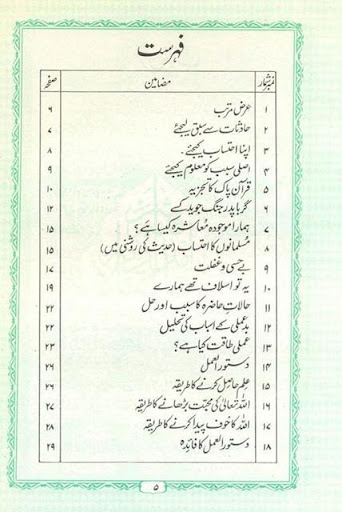 فہرست
نمبر شمار مضامین صفحہ
۱ عرض مرتب ۶
۲ حادثات سے سبق لیجئے ۷
۳ اپنا احتساب کیجئے۔ ۸
۴ اصلی سبب کو معلوم کیجئے ۹
۵ قرآن پاک کا تجزیہ ۱۰
۶ گر با پدر جنگ جوید کسے ۱۲
۷ ہمارا موجودہ معاشرہ کیسا ہے؟ ۱۵
۸ مسلمانوں کا احتساب (حدیث کی روشنی میں) ۱۵
۹ بے حسی و غفلت ۱۷
۱۰ یہ تو اسلاف تھے ہمارے ۱۹
۱۱ حالاتِ حاضرہ کا سبب اور حل ۲۲
۱۲ بد عملی کے اسباب کی تحلیل ۲۲
۱۳ عملی طاقت کیا ہے؟ ۲۳
۱۴ دستور العمل ۲۶
۱۵ علم حاصل کرنے کا طریقہ ۲۶
۱۶ اللہ تعالیٰ کی محبت بڑھانے کا طریقہ ۲۷
۱۷ اللہ کا خوف پیدا کرنے کا طریقہ ۲۸
۱۸ دستور العمل کا فائدہ ۲۹
۵